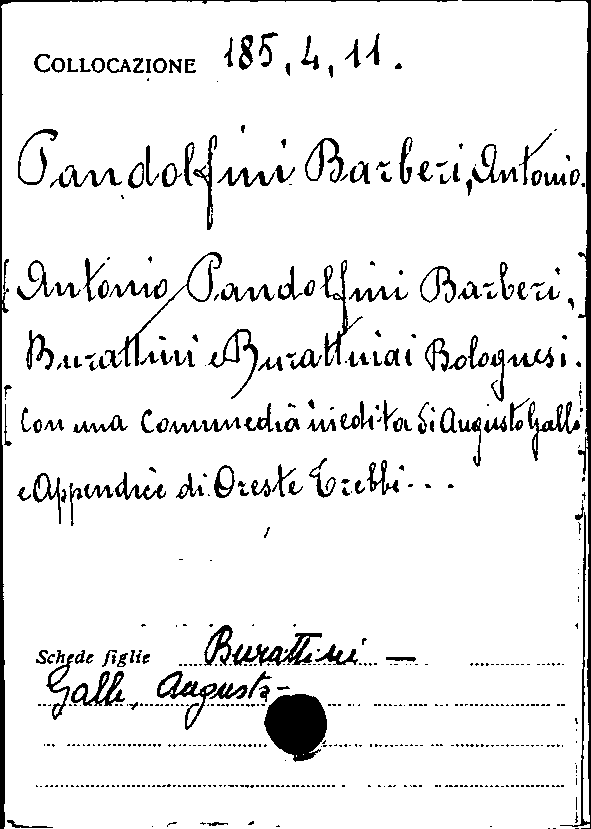 COLLOCAZIONE 185, 4, 11.
Pandolfini Barberi, Antonio.
Antonio Pandolfini Barberi,
Burattini e Burattinai Bolognesi.
Con una Commedia inedita di Augusto Galli
e Appendice di Oreste Trebbi...
Schede figlie Burattini —
Galli, Augusto -